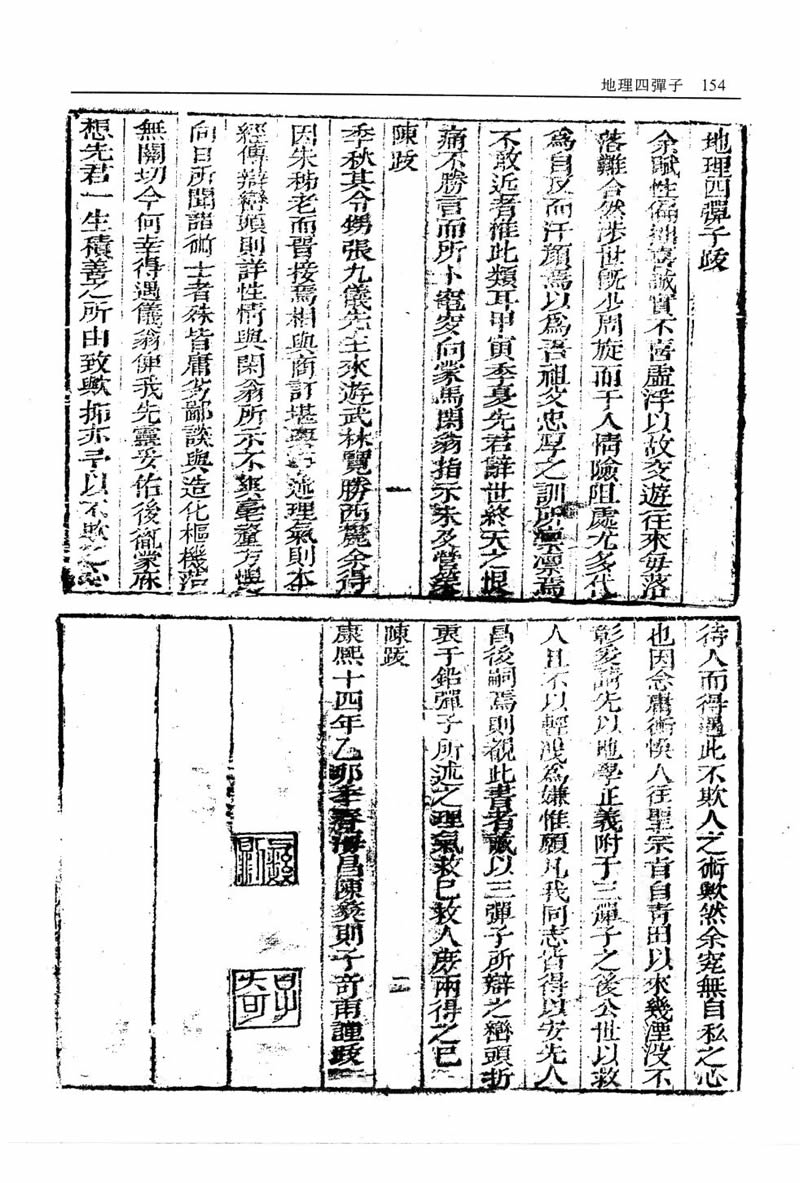 地理四彈子 154
地理四彈子跋
余賦性偏拙喜誠實不喜虛浮以故交遊往來每落
落難合然涉世既少周旋而于人情險阻處尤多代
為自反而汗顏焉以為吾祖父忠厚之訓所凜凜焉
不敢近者惟此類耳甲寅季夏先君辭世終天之恨
痛不勝言而所卜窀穸向蒙馬閑翁指示未及營葬
陳跋
一
季秋其令甥張九儀先生來遊武林覽勝西麓余得
因朱秭老而晉接焉相與商訂堪輿 述理氣則本
經傳辯巒頭則詳性情與閑翁所示不異毫釐方愧
向日所聞諸術士者殊皆庸劣鄙談與造化樞機洛
無關切今何幸得遇儀翁俾我先靈妥佑後胤蒙庥
想先君一生積善之所由致歟抑亦予以不欺之心
待人而得遇此不欺人之術歟然余寔無自私之心
也因念庸術悞人往聖宗旨自青田以來幾湮沒不
彰爰請先以地學正義附于三彈子之後公世以救
人且不以輕洩為嫌惟願凡我同志皆得以安先人
昌後嗣焉則觀此書者誠以三彈子所辯之巒頭折
衷于鉛彈子所述之理氣救己救人庶兩得之已
陳跋
二
康熙十四年乙卯季春海昌陳 則子奇甫謹跋